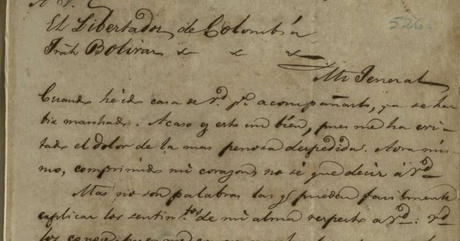 El Libertador de Colombia
Simón Bolívar &. &. &.
Mi General
Cuando he ido casa de Vd. pa. acompañarlo, ya se ha-
bia marchado. Acaso es esto un bien, pues me ha evi-
tado el dolor de la mas penosa despedida. Aora mis-
mo, comprimido mi corazon, no sé que decir á Vd.
Mas no son palabras las qe. pueden facilmente
esplicar los sentimtos. de mi alma respecto á Vd.: Vd.
los conoce, pues me